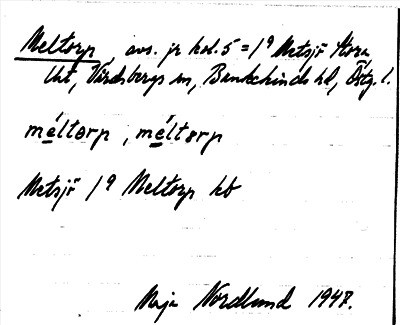 Meltorp avs. jr kol. 5 = 1⁹ Metsjö Stora
Utt, Vårdsbergs sn, Bankekinds hd, Östg. l.
méltorp, méltorp
Metsjö 1⁹ Meltorp kb
Maja Nordlund 1948.